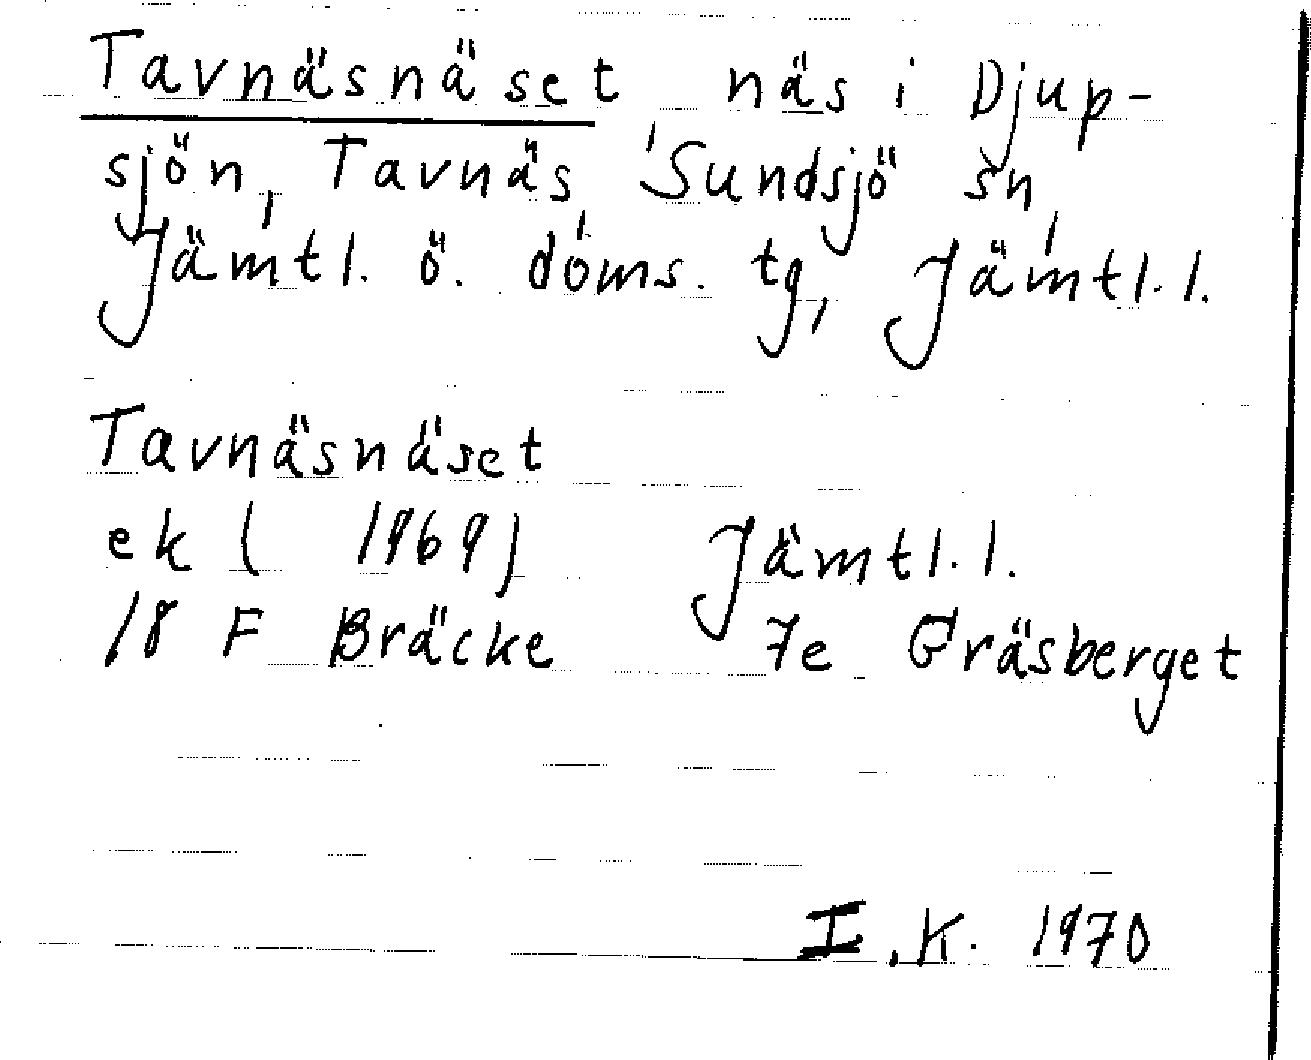 Tavnäsnäset näs i Djup-
sjön, Tavnäs, Sundsjö sn,
Jämtl. ö. doms. tg, Jämtl. l.
Tavnäsnäset
ek ( 1969) Jämtl. l.
18 F Bräcke 7e Gräsberget
I.K. 1970